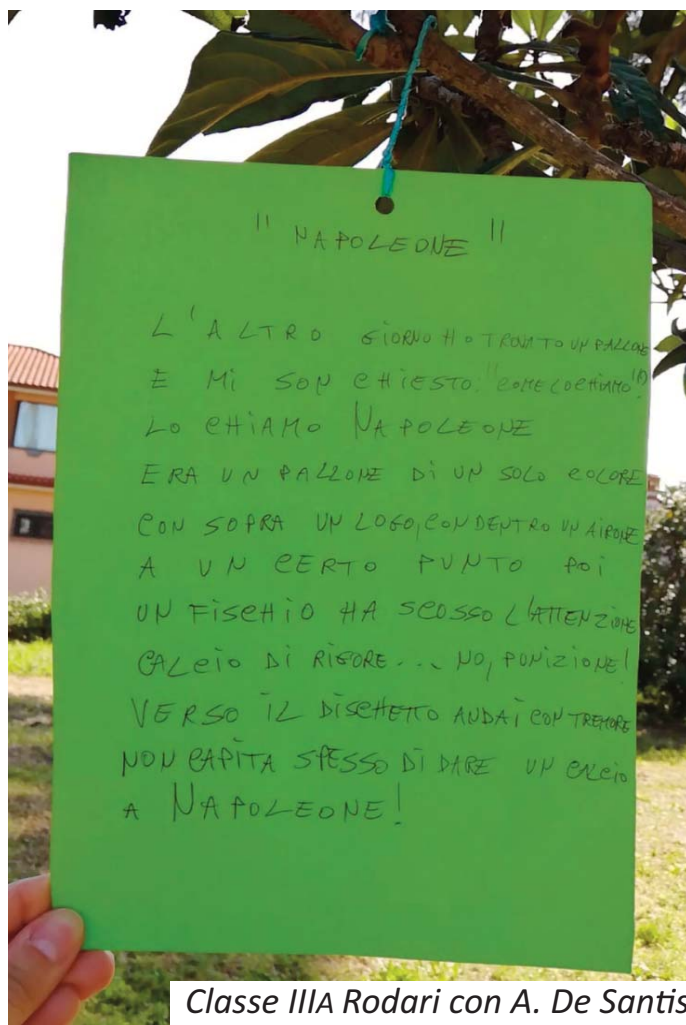 " NAPOLEONE "
L'ALTRO GIORNO HO TROVATO UN PALLONE
E Mi SON CHIESTO: "COME LO CHIAMO"(?)
LO CHIAMO NAPOLEONE
ERA UN PALLONE Di UN SOLO COLORE
CON SOPRA UN LOGO, CON DENTRO UN AIRONE
A UN CERTO PUNTO POi
UN FISCHIO HA SCOSSO L'ATTENZIONE
CALCIO DI RIGORE... NO, PUNIZIONE!
VERSO IL DISCHETTO ANDAI CON TREMORE
NON CAPITA SPESSO DI DARE UN CALCIO
A NAPOLEONE!
Classe IIIA Rodari con A. De Santis